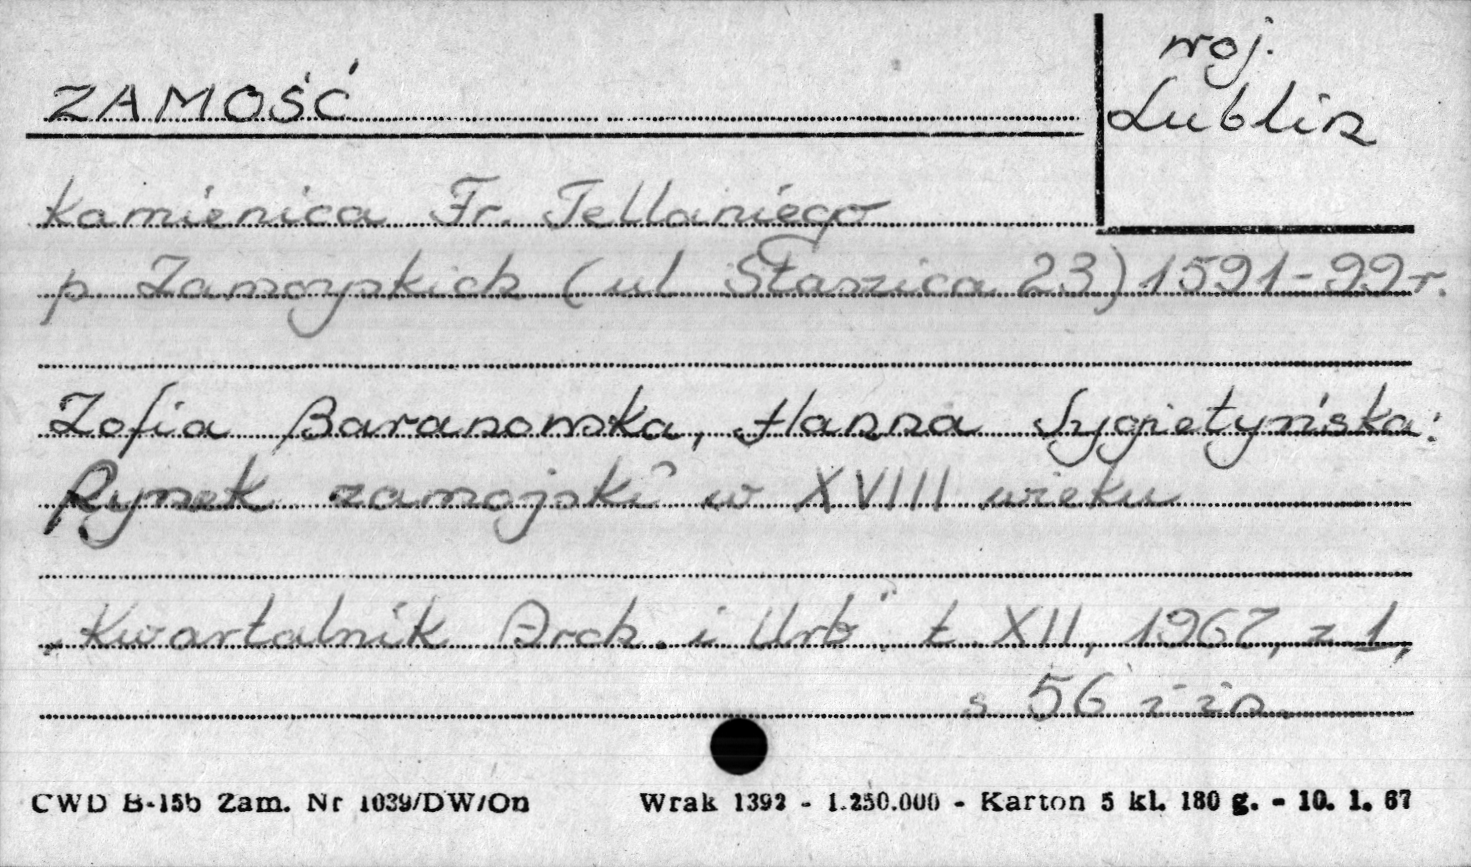 ZAMOŚĆ
woj.
Lublin
kamienica Fr. Tellaniego
p. Zamoyskich (ul Staszica 23) 1591-99 r.
Zofia Baranowska, Hanna Sygietyńska:
Rynek zamojski w XVIII wieku
„Kwartalnik Arch. i Urb" t. XII, 1967, z 1,
s 56 i in.
CWD B-15b Zam. Nr 1039/DW/On Wrak 1392 - 1.250.000 - Karton 5 kl. 180 g. - 10. 1. 67